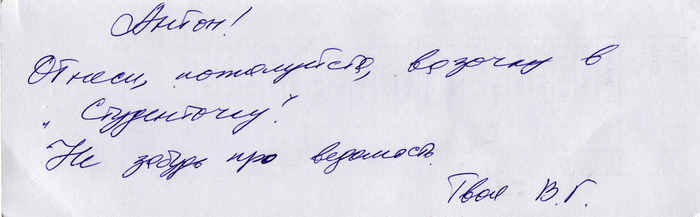 Антон!
Отнеси, пожалуйста, вазочку в
„Студенточку".
Не забудь про ведомость.
Твоя В.Г.